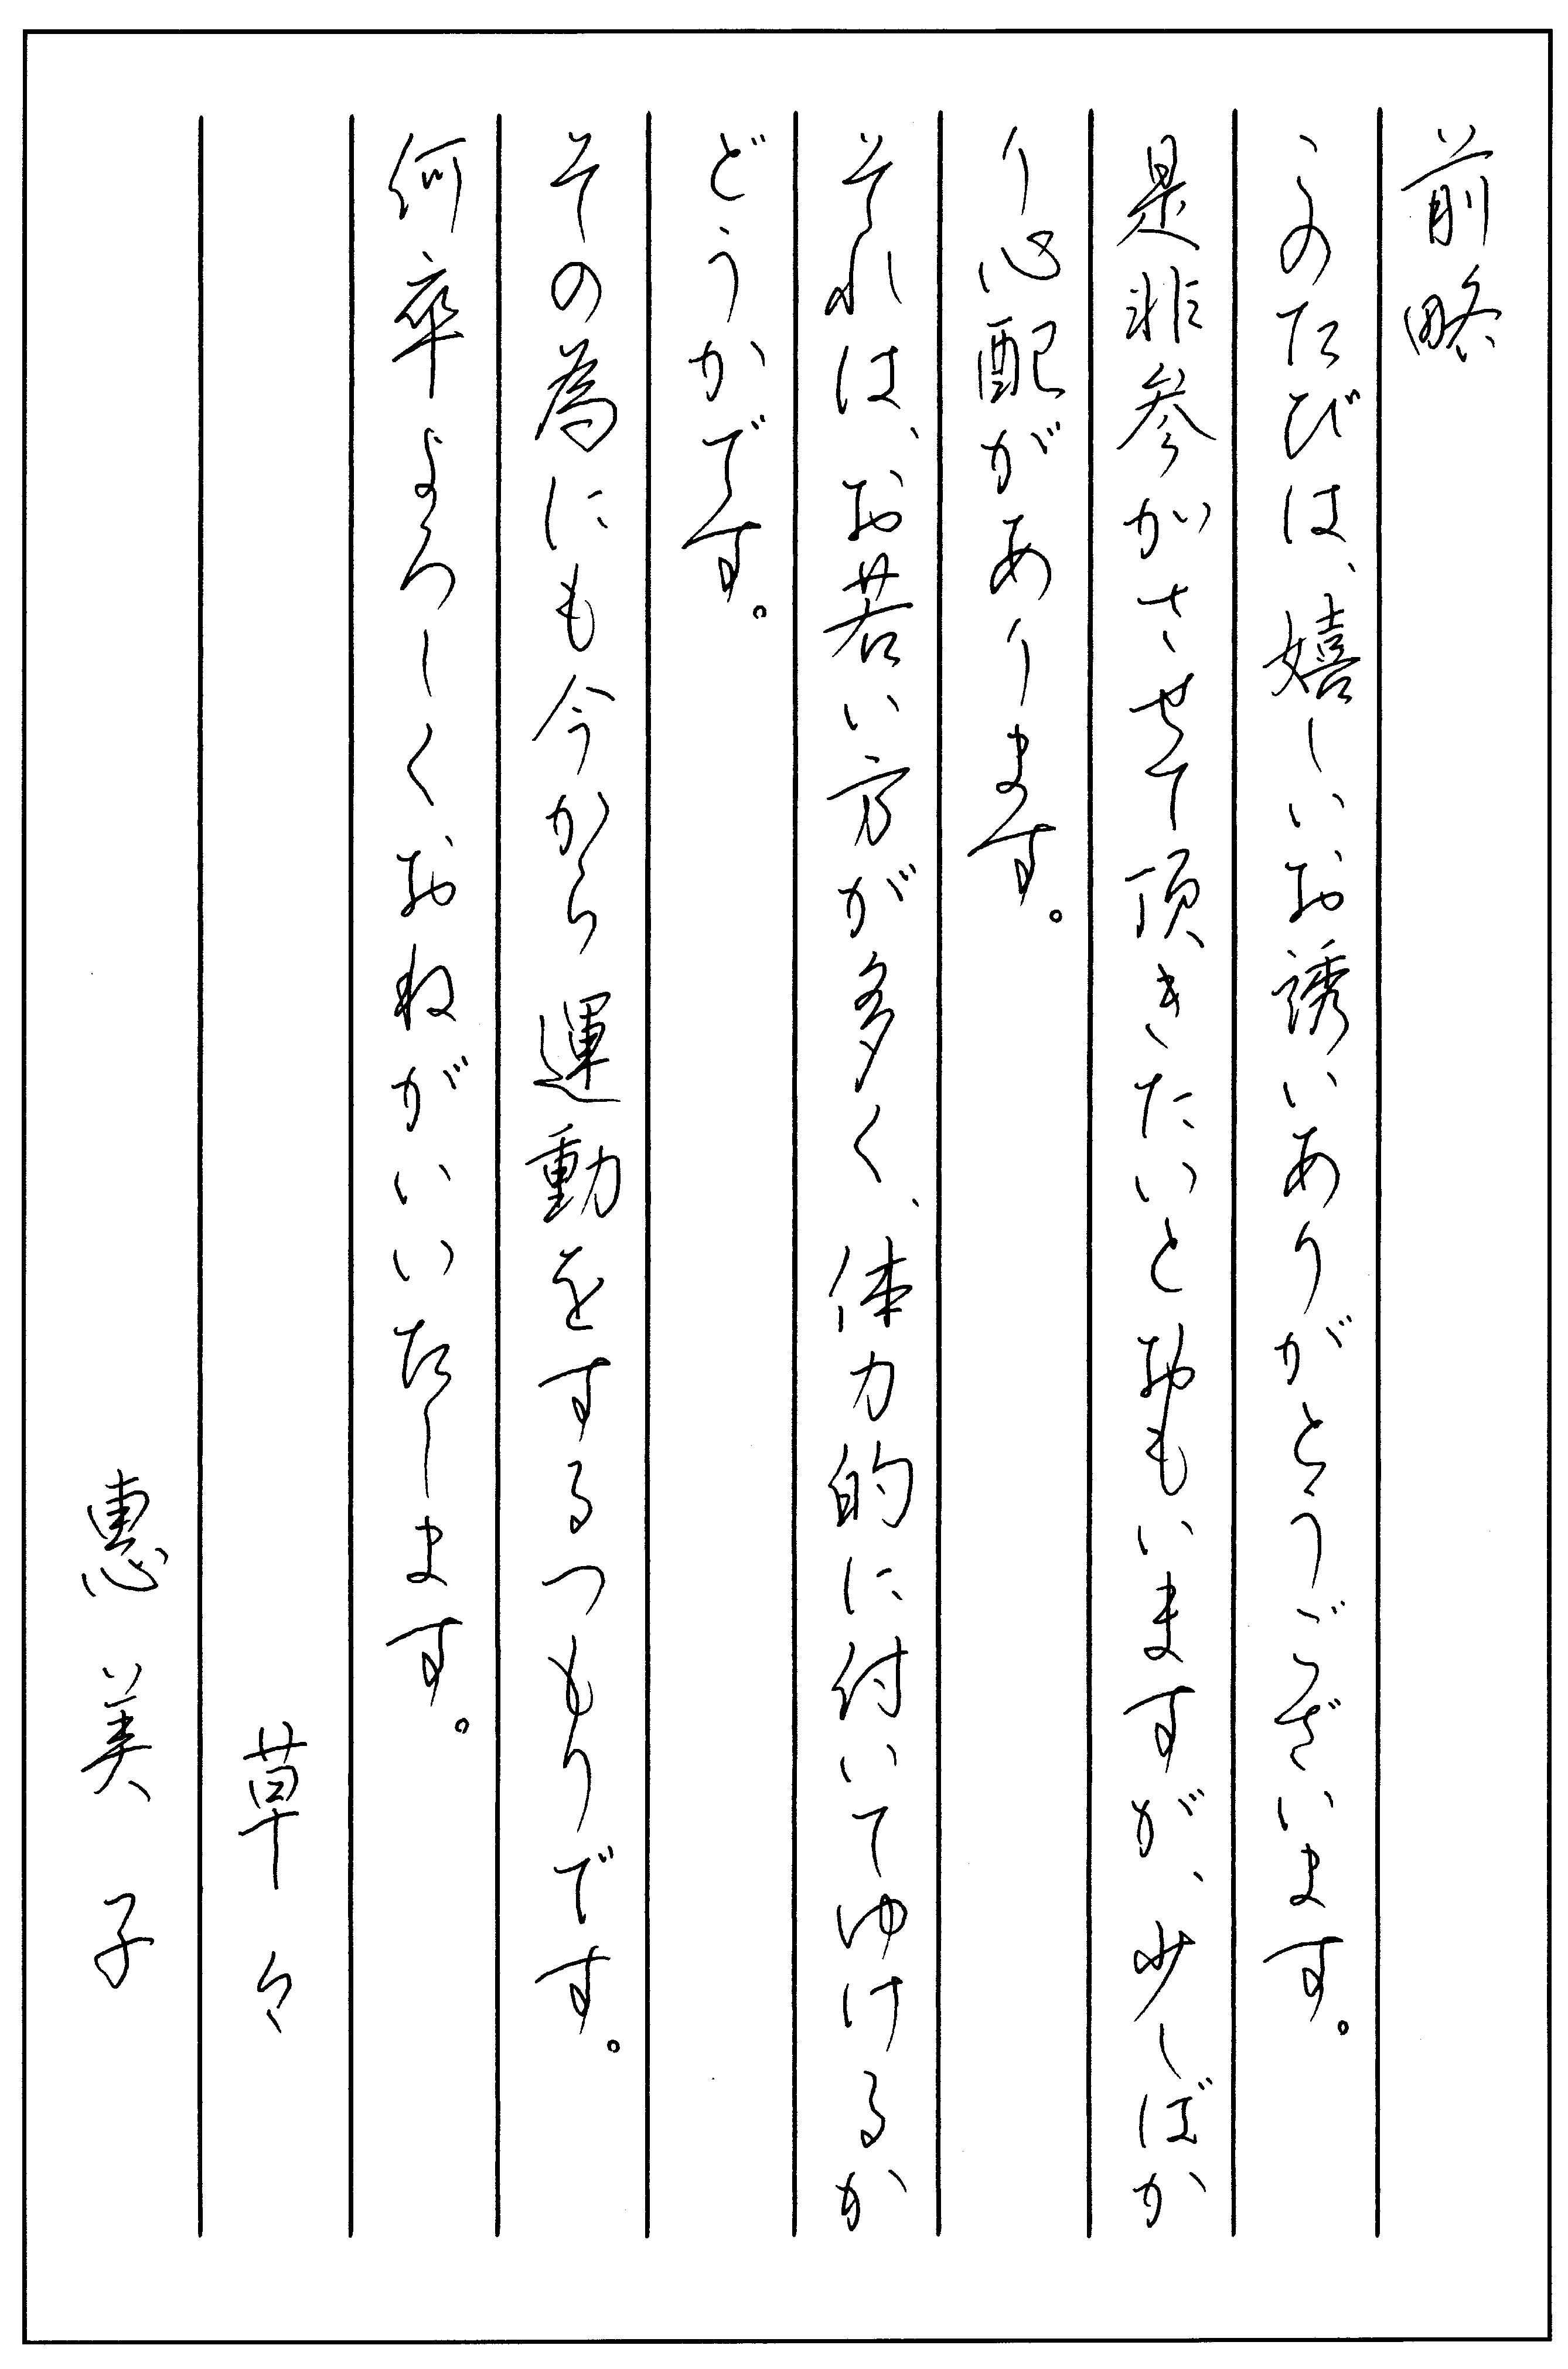 前略
このたびは、嬉しいお誘いありがとうございます。
是非参がさせて頂きたいとおもいますが、少しばか
り心配があります。
それは、お若い方が多く、体力的に付いてゆけるか
どうかです。
その為にも今から運動をするつもりです。
何卒よろしくおねがいいたします。
草々
恵美子